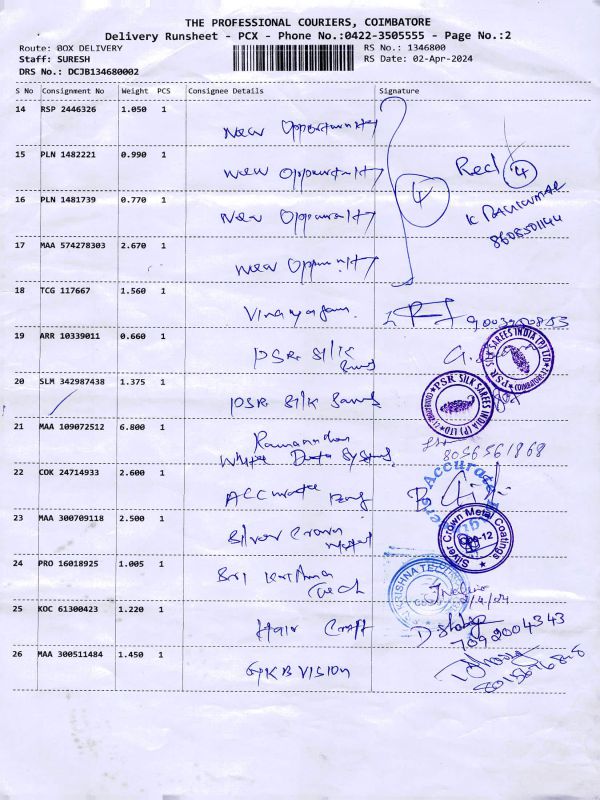 THE PROFESSIONAL COURIERS, COIMBATORE
Delivery Runsheet - PCX - Phone No.:0422-3505555 - Page No.:2
Route: 0OX DELIVERY
RS No.: 1346800
Staff: SURESH
RS Date: 02-Apr-2024
DRS No.: DCJB134680002
S No Consignment No Weight PCS Consignee Details Signature
14 RSP 2446326 1.050 1 New Opportunity
15 PLN 1482221 0.990 1 New Opportunity
Recd 4
16 PLN 1481739 0.770 1 New Opportunity
4
8608501144
17 MAA 574278303 2.670 1 New Opportunity
18 TCG 117667 1.560 1 Vinayagam
19 ARR 10339011 0.660 1 PSR Silk
PSR SILK SAREES INDIA (P) LTD COIMBATORE
20 SLM 342987438 1.375 1 PSR Silk Sarees
PSR SILK SAREES INDIA (P) LTD COIMBATORE
21 MAA 109072512 6.800 1
White Data Systems
8056561868
22 COK 24714933 2.600 1 Accurate
Accurate
23 MAA 300709118 2.500 1 Silver Crown
Silver Crown Metal Coatings
24 PRO 16018925 1.005 1 Sri Krishna
Tech
25 KOC 61300423 1.220 1 Hair Craft
7092004343
26 MAA 300511484 1.450 1 GKB VISION